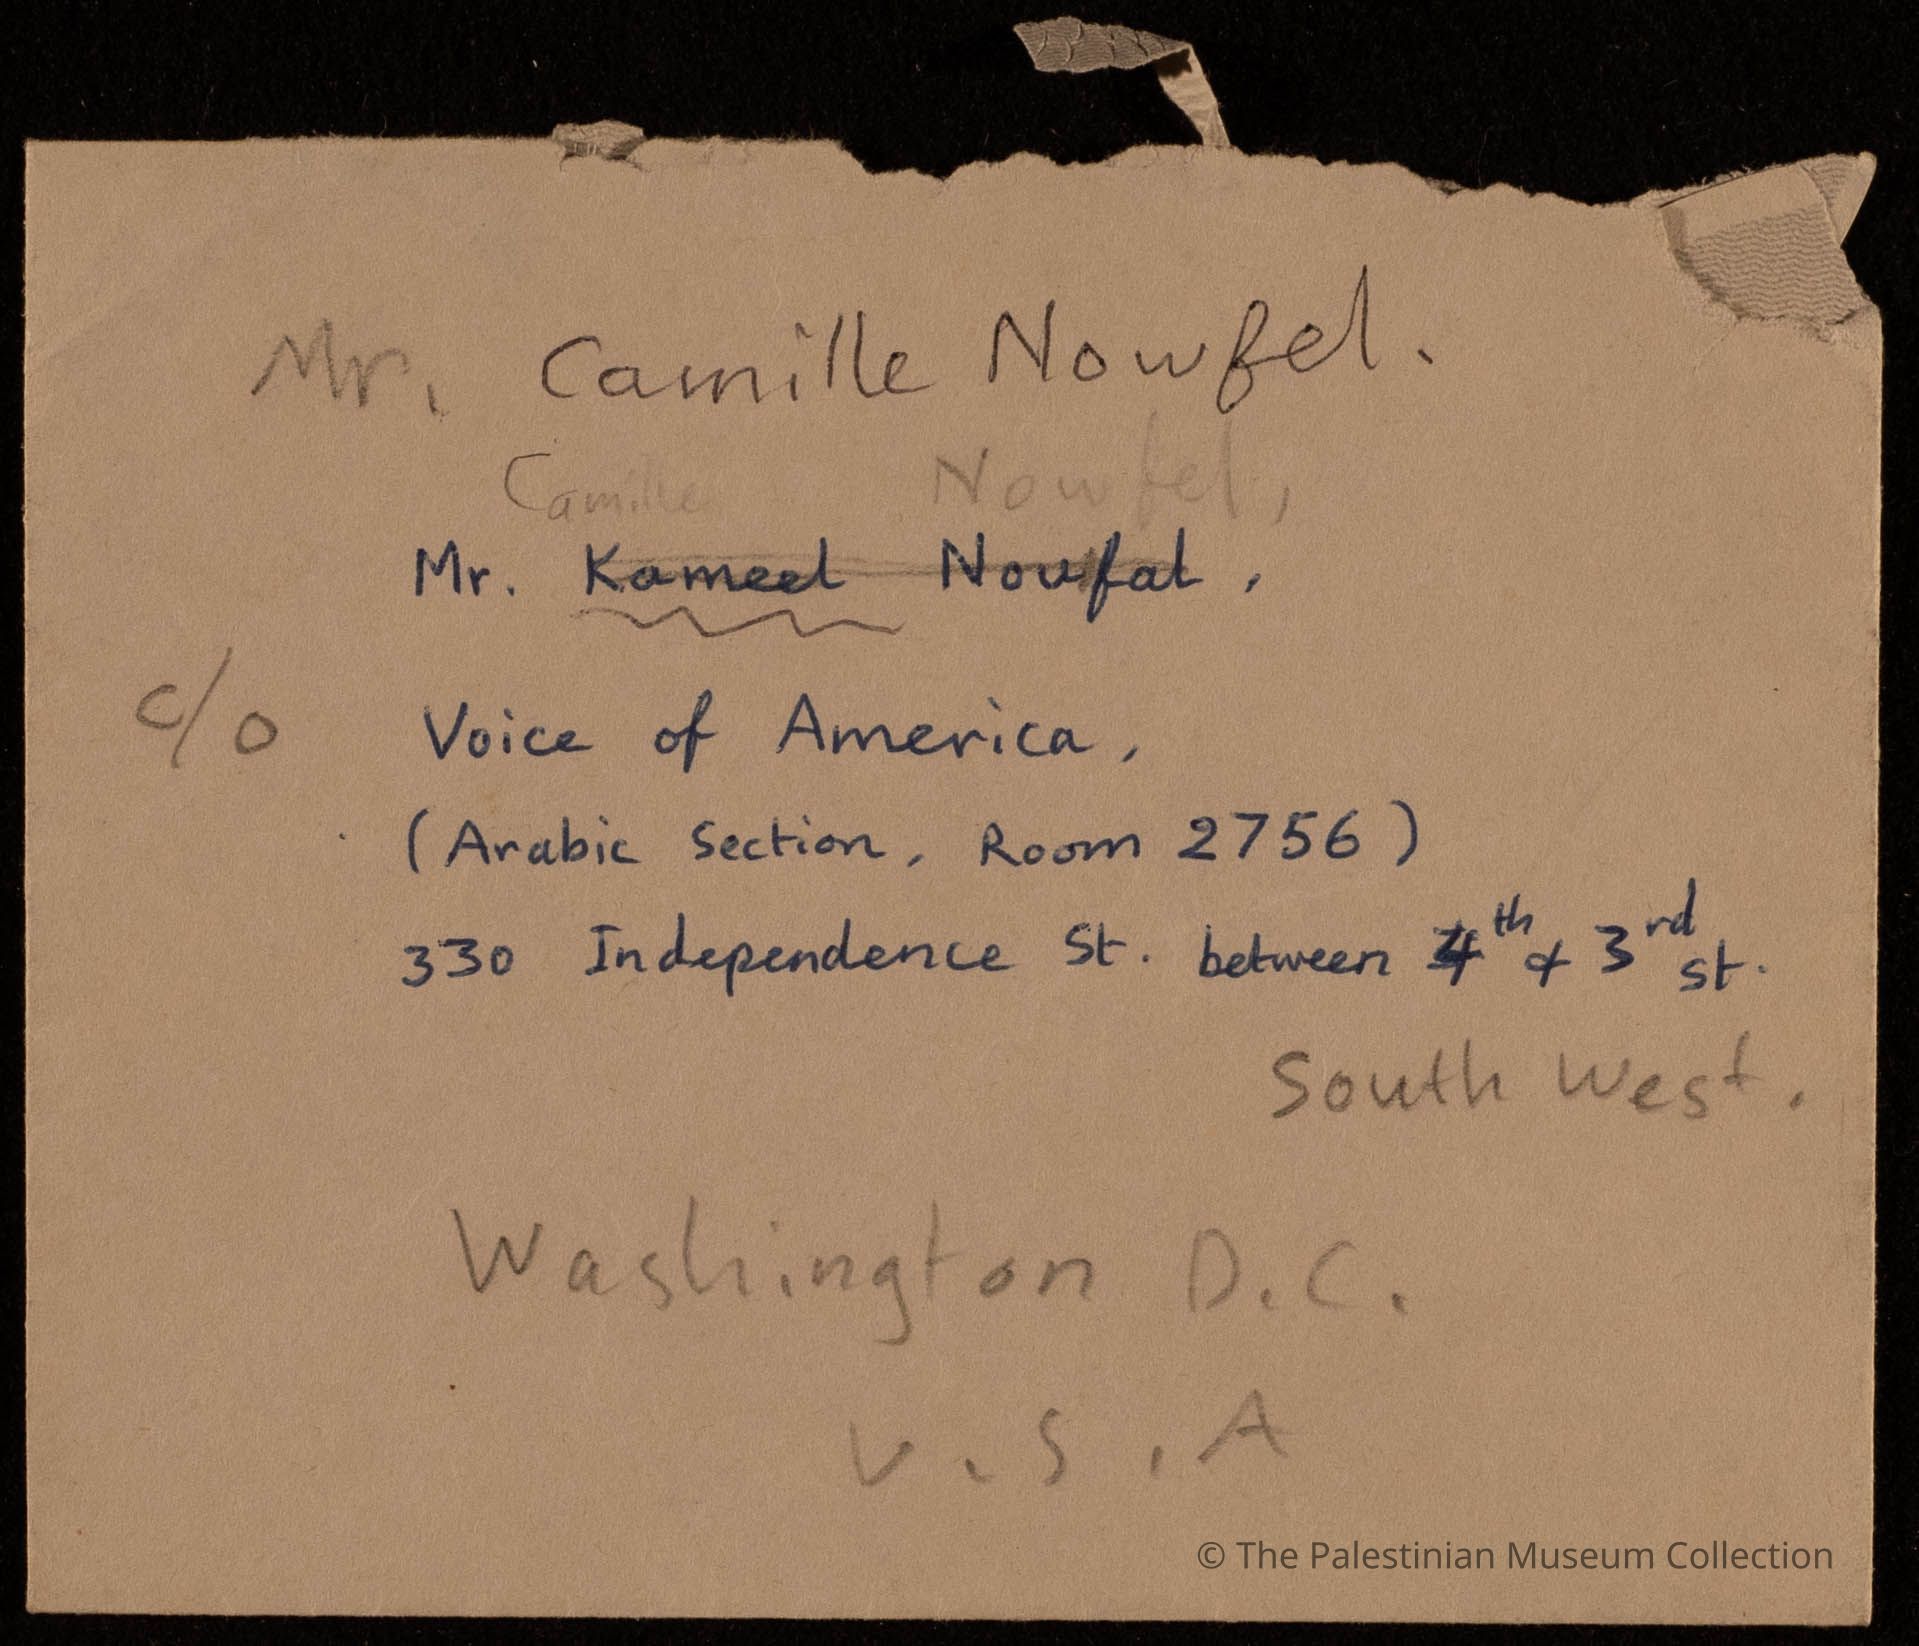 Mr. Camille Nowfel.
Camille Nowfel,
Mr. Kameel Noufal,
c/o Voice of America,
(Arabic Section, Room 2756)
330 Independence St. between 4th & 3rd St.
South West.
Washington D.C.
U.S.A
© The Palestinian Museum Collection